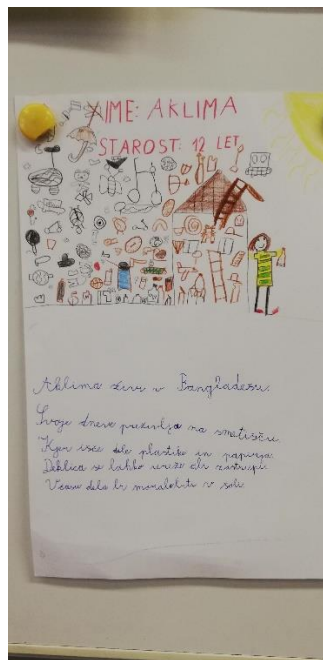 IME: AKLIMA
STAROST: 12 LET
Aklima živi v Bangladešu.
Svoje dneve preživlja na smetišču.
Kjer išče dele plastike in papirja.
Deklica se lahko ureže ali zastrupi.
Včasih dela bi morala biti v šoli